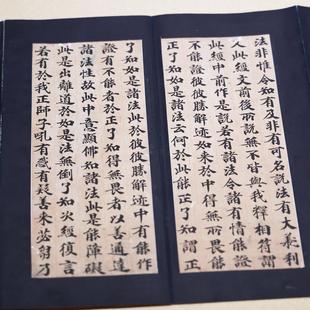 法非惟令知有及非有可名說法有大義利
人此經文前後所說無不皆與我釋相符謂
此經中前作是說若有諸法令諸有情能證
不能證彼彼勝解迹如來於中得無所畏能
正了知如是諸法云何於此能正了知謂正
了知如是諸法此於彼彼勝解迹中有能作
證有不能者於正了知得無畏者以善通達
諸法性故此中意顯佛知諸法此是能障礙
此是出離道於如是法無倒了知次經復言
若有於我正師子吼有惑有疑善來苾芻乃